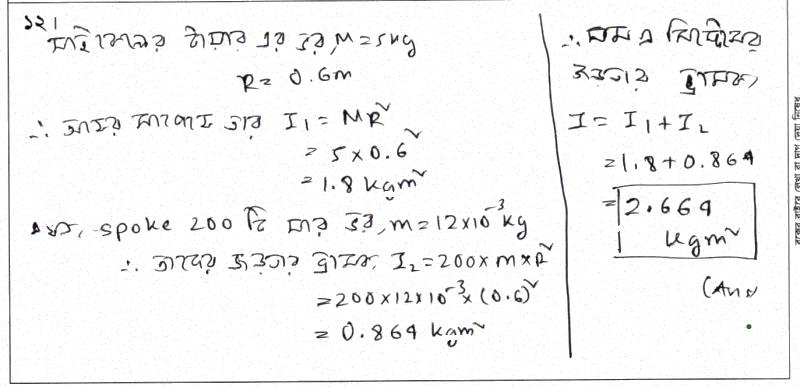 ১২।
সাইকেলের টায়ার এর ভর, M = 5kg
R = 0.6m
∴ অক্ষের সাপেক্ষে তার I₁ = MR²
= 5 × 0.6²
= 1.8 kgm²
spoke 200 টি যার ভর, m = 12×10⁻³ kg
∴ তাদের জড়তার ভ্রামক, I₂ = 200 × m × R²
= 200 × 12 × 10⁻³ × (0.6)²
= 0.864 kgm²
∴ সমগ্র সিস্টেমের
জড়তার ভ্রামক,
I = I₁ + I₂
= 1.8 + 0.864
= 2.664
kgm²
(Ans